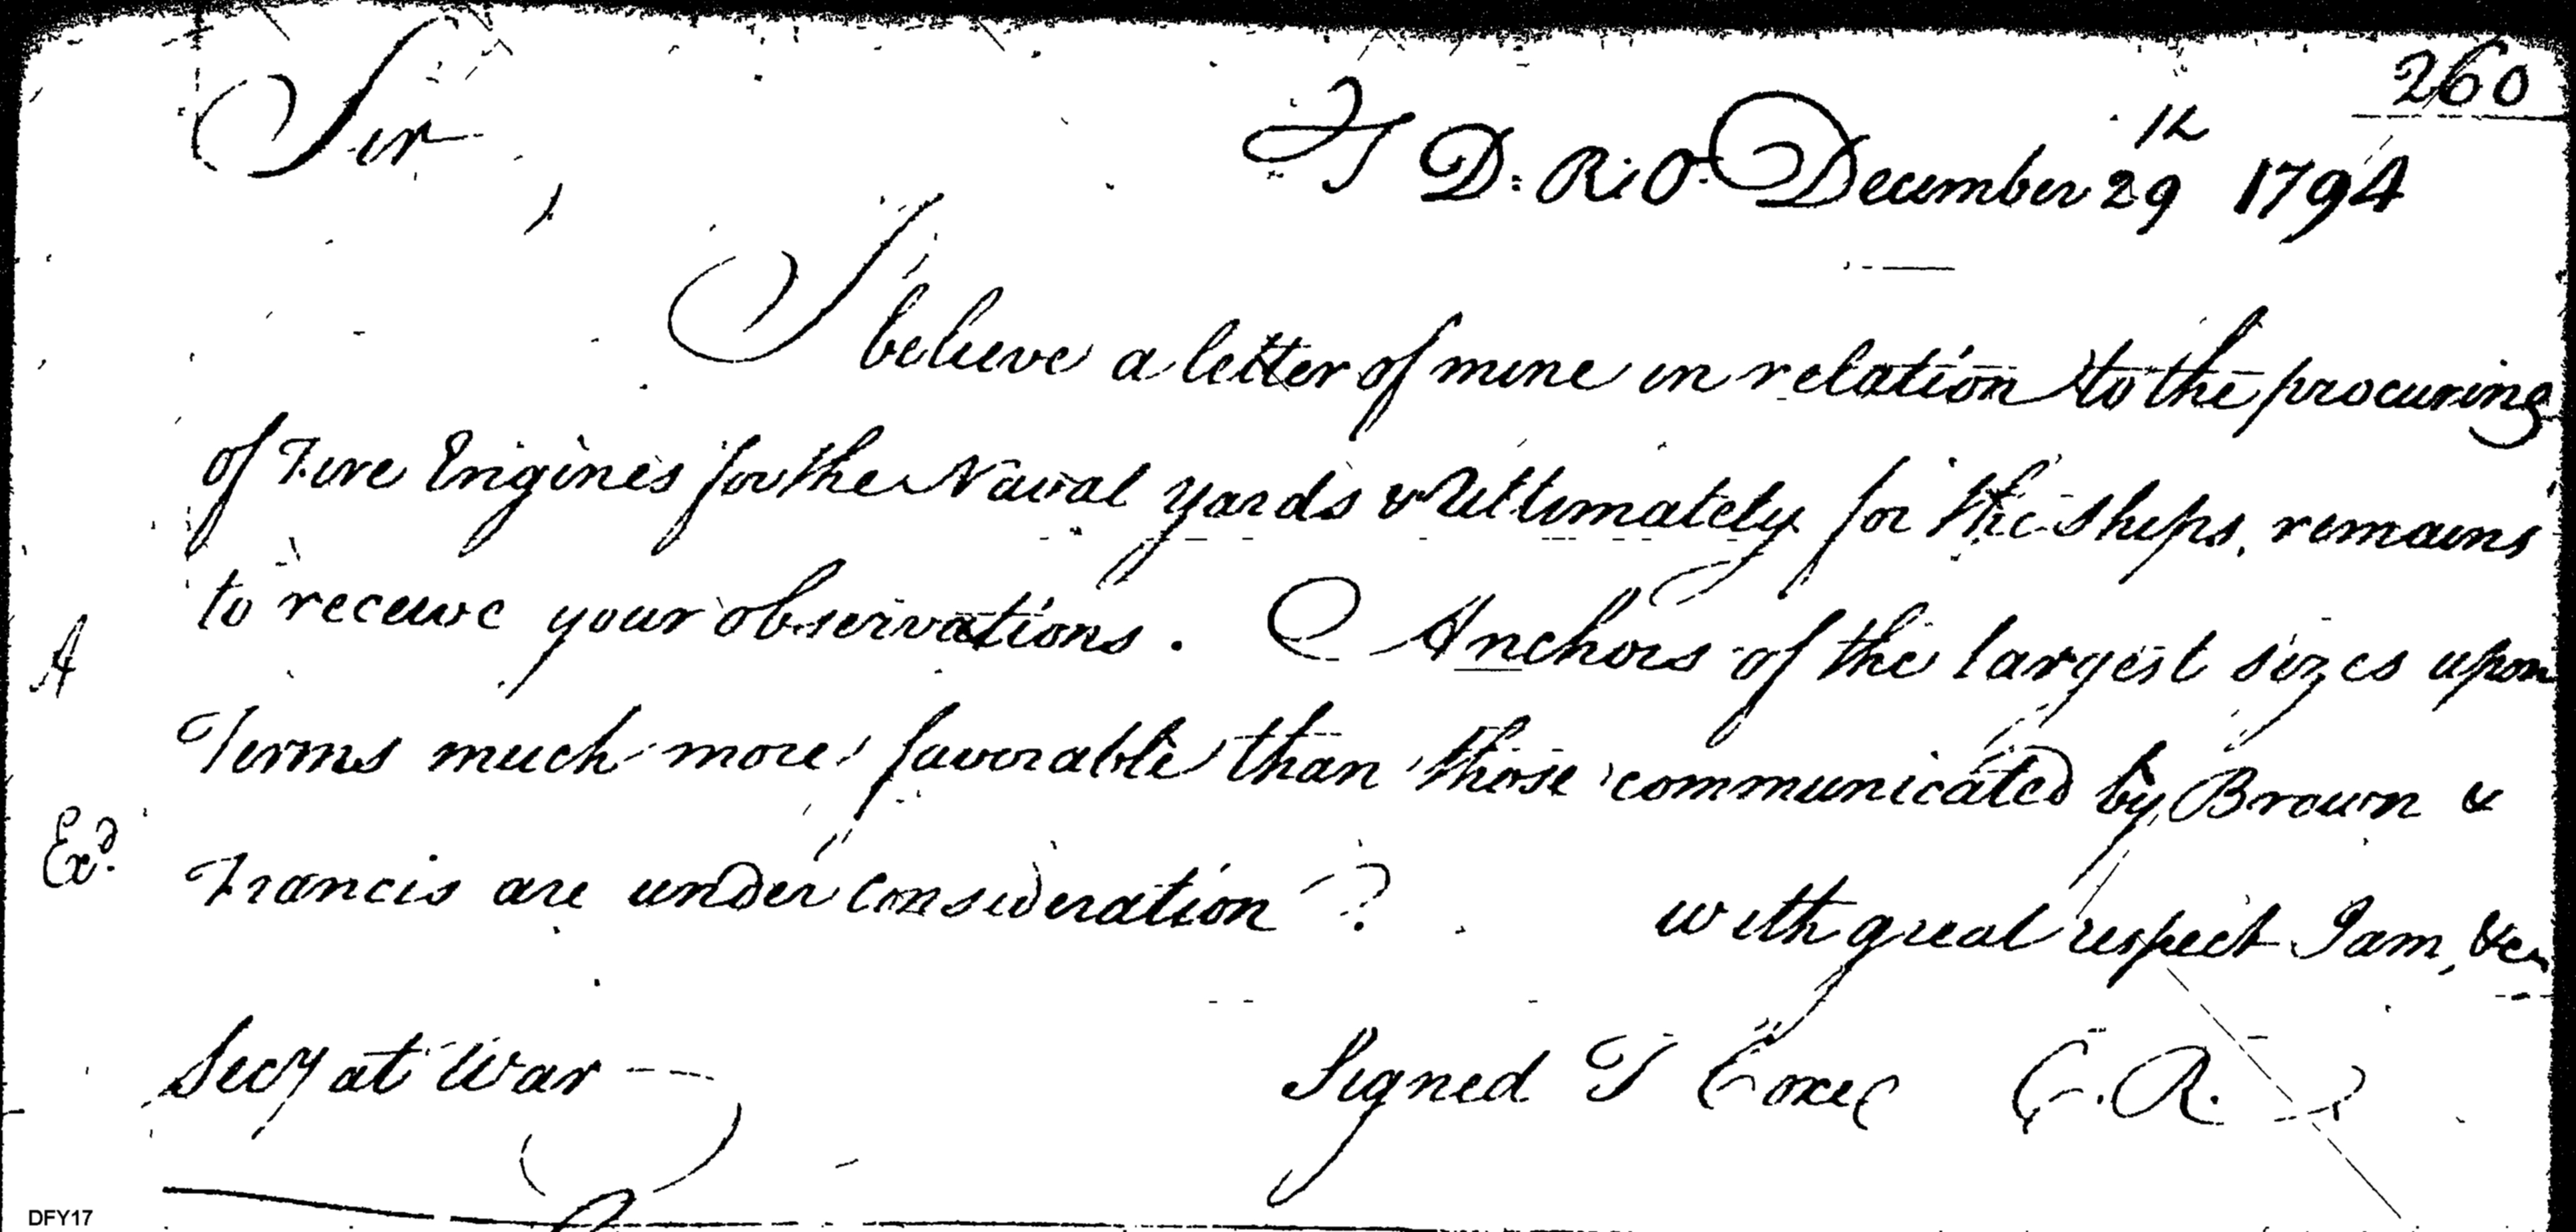 260
Sir,
T D: R: O: December 29th 1794
I believe a letter of mine in relation to the procuring
of Fire Engines for the Naval yards & Ultimately for the Ships, remains
to receive your observations. Anchors of the largest sizes upon
A
Terms much more favorable than those communicated by Brown &
Exd.
Francis are under consideration?
with great respect I am, &c
Secy at War
Signed T Coxe C. R.
DFY17